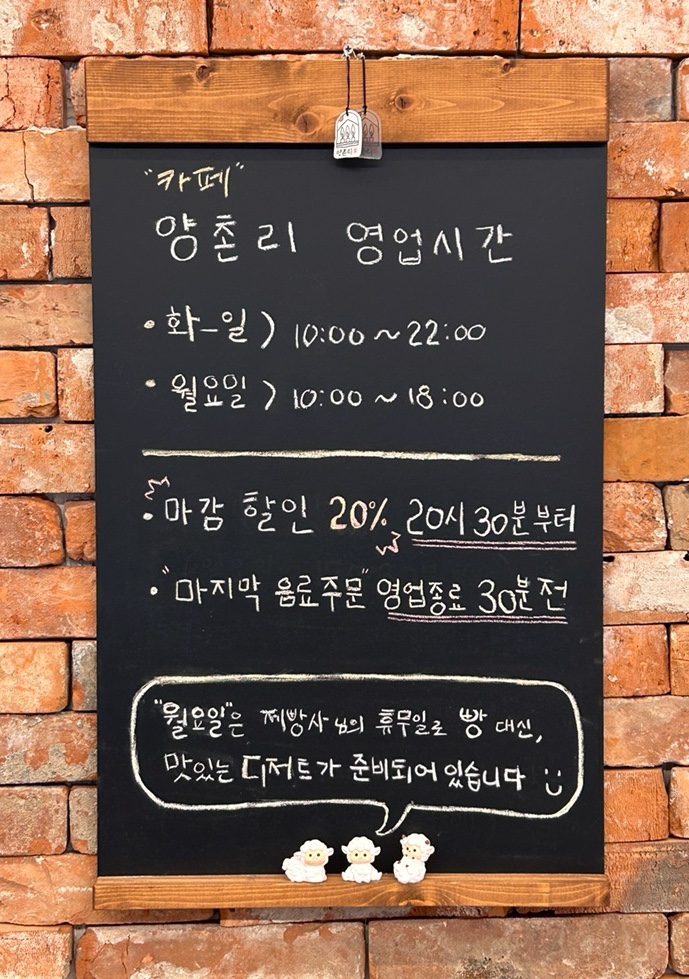 "카페"
양촌리 영업시간
• 화-일 > 10:00 ~ 22:00
• 월요일 > 10:00 ~ 18:00
• 마감 할인 20% 20시 30분부터
• "마지막 음료주문" 영업종료 30분전
"월요일"은 제빵사님의 휴무일로 빵 대신,
맛있는 디저트가 준비되어 있습니다 :)